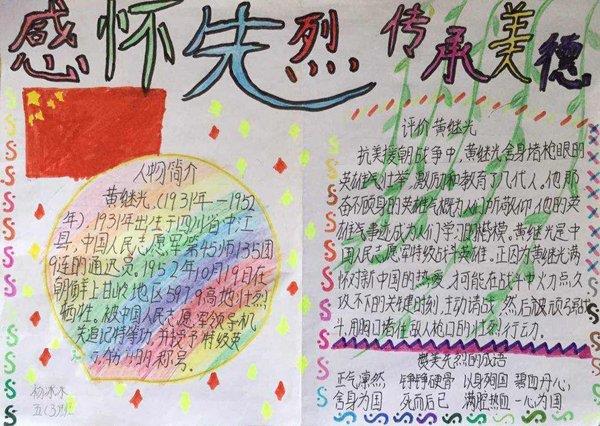 感怀先烈 传承美德
人物简介
黄继光,(1931年—1952
年),1931年出生于四川省中江
县,中国人民志愿军第45师135团
9连的通迅员。1952年10月19日在
朝鲜上甘岭地区597.9高地壮烈
牺牲。被中国人民志愿军领导机
关追记特等功,并授予特级英
雄的称号。
杨冰木
五(3)班
评价黄继光
抗美援朝战争中,黄继光舍身堵枪眼的
英雄壮举,激励和教育了几代人。他那
奋不顾身的英雄气概为人们所敬仰,他的英
雄事迹成为人们学习的楷模。黄继光是中
国人民志愿军特级战斗英雄。正因为黄继光满
怀对新中国的热爱,才可能在战斗中火力点久
攻不下的关键时刻,主动请战,然后被顽强战
斗,用胸口堵住敌人枪口的壮烈行动。
赞美先烈的成语
正气凛然 铮铮硬骨 以身殉国 碧血丹心,
舍身为国 死而后已 满腔热血 一心为国